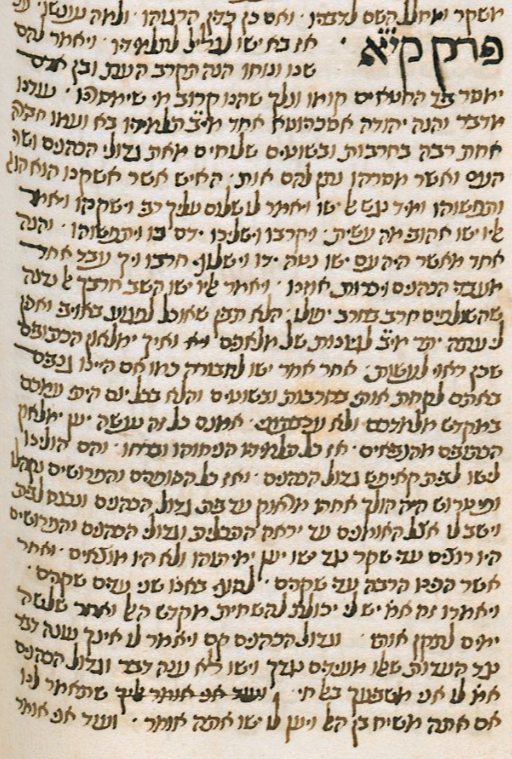 משקר ומחלל השם לדבהו · ואם כן בהן הרגוהו · ולמה
פרק קי"א · אז בא ישו לגליל לתלמידיו · ויאמר להם
שנו ונוחו הנה תקרב העת ובן אדם
ימסר ביד החטאים קומו ונלך שהנו קרוב מי שימסרהו · עודנו
מדבר והנה יהודה אסכריוטא אחד מי"ב תלמידיו בא ועמו חבורה
אחת רבה בחרבות ובשוטים שלוחים מאת גדולי הכהנים ושרי
העם ואשר מסרהו נתן להם אות · האיש אשר אשקנו הוא הוא
ותתפשוהו ומיד נגש לישו ויאמר לו שלום עליך רבי וישקהו ויאמר
אליו ישו אהובי מה עשית · ויקרבו וישלחו ידם בו ויתפשוהו · והנה
אחד מאשר היה עם ישו נטה ידו וישלוף חרבו ויך עבד אחד
מעבדי הכהנים ויכרות אזנו · ויאמר אליו ישו השב חרבך אל נדנה
שהשולפים חרב בחרב יפולו · הלא תבין שאוכל לפגוע באויבי ואכן
לי עתה יותר מי"ב לגיונות של מלאכים · ואיך ימלאון הכתובים
שכן ראוי לעשות · אחר אמר ישו לחבורה כמו אם היינו גנבים
באתם לקחת אותי בחרבות ובשוטים והלא בכל יום הייתי עמכם
במקדש מלמדכם ולא עכבתוני · אמנם כל זה נעשה יען ימלאון
הכתובים מהנביאים · אז כל תלמידיו הניחוהו וברחו · והם הוליכו
לישו לבית קאיפש גדול הכהנים · ואז כל הסופרים והפרושים נקהלו
ופיטרוס היה הולך אחריו מרחוק עד בית גדול הכהנים ונכנס לבית
וישב לו אצל האומנים עד יראה התכלית וגדולי הכהנים והפרושים
היו רוצים עד שקר נגד ישו יען ימיתוהו ולא היו מוצאים · ואחר
אשר הכינו הרבה עדי שקרים · לסוף באו שני עדים שקרים ·
ויאמרו זה אמר יש לי יכולת להשחית מקדש האל ואחר שלשה
ימים לתקן אותו · וגדול הכהנים קם ויאמר לו אינך עונה דבר
נגד העדות שאלו מעידים נגדך וישו לא ענה דבר וגדול הכהנים
אמר לו אני משביעך באל חי · ועוד אני אומר אליך שתאמר לנו
אם אתה משיח בן האל ויען לו ישו אתה אומר · ועוד אני אומר